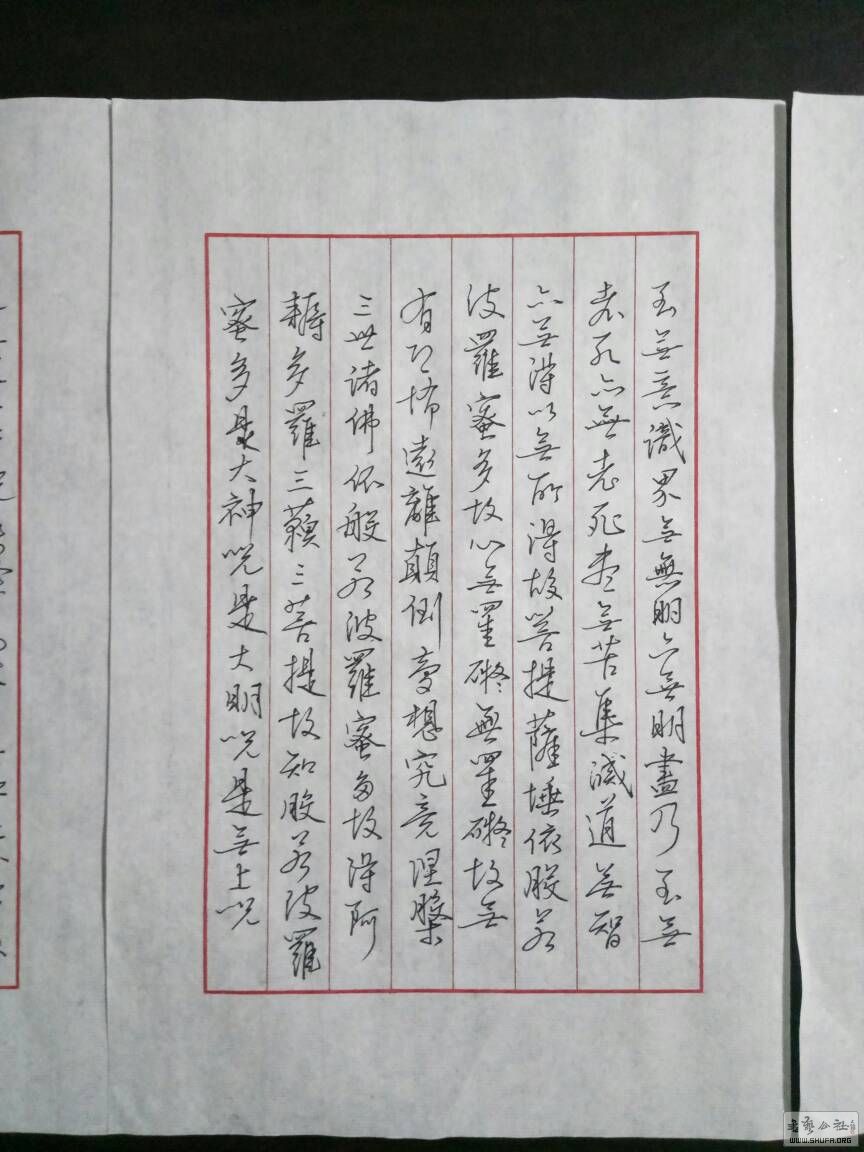 至無意識界無無明亦無明盡乃至無
老死亦無老死盡無苦集滅道無智
亦無得以無所得故菩提薩埵依般若
波羅蜜多故心無罣礙無罣礙故無
有恐怖遠離顛倒夢想究竟涅槃
三世諸佛依般若波羅蜜多故得阿
耨多羅三藐三菩提故知般若波羅
蜜多是大神咒是大明咒是無上咒
書藝公社
WWW.SHUFA.ORG